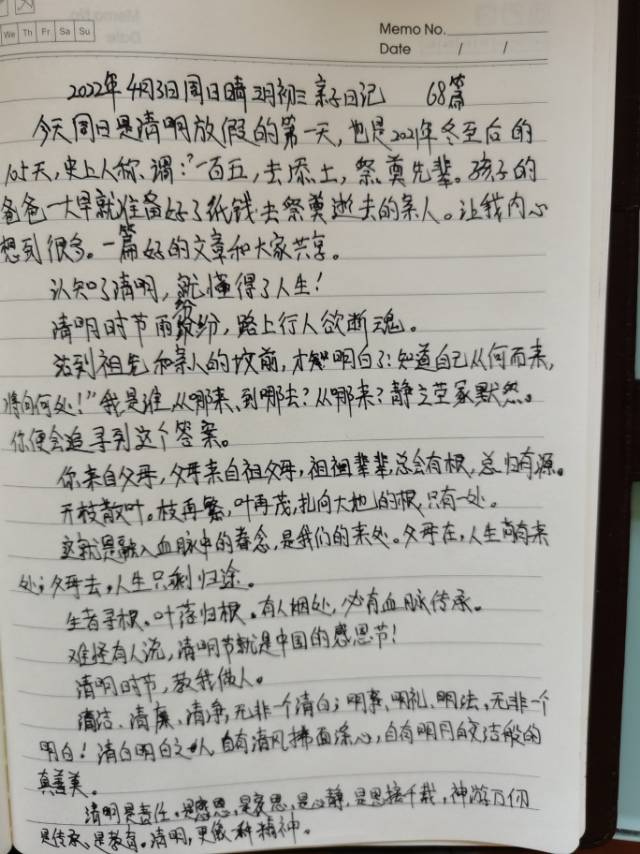 We Th Fr Sa Su
Memo No.
Date / /
2022年4月3日周日晴三月初三亲子日记 68篇
今天周日是清明放假的第一天,也是2021年冬至后的
105天,史上人称、谓:"一百五,去添土,祭奠先辈。孩子的
爸爸一大早就准备好了纸钱去祭奠逝去的亲人。让我内心
想到很多。一篇好的文章和大家共享。
认知了清明,就懂得了人生!
清明时节雨纷纷,路上行人欲断魂。
站到祖先和亲人的坟前,才知明白了:知道自己从何而来,
将向何处!"我是谁,从哪来、到哪去?从哪来?静立茔冢默然。
你便会追寻到这个答案。
你来自父母,父母来自祖父母,祖祖辈辈,总会有根,总归有源。
开枝散叶。枝再繁,叶再茂,扎向大地的根,只有一处。
这就是融入血脉中的眷念,是我们的来处。父母在,人生尚有来
处;父母去,人生只剩归途。
生者寻根。叶落归根。有人烟处,必有血脉传承。
难怪有人说,清明节就是中国的感恩节!
清明时节,教我做人。
清洁、清廉、清净,无非一个清白;明事、明礼、明法,无非一个
明白!清白明白之人,自有清风拂面涤心,自有明月皎洁般的
真善美。
清明是责任,是感恩,是哀思,是心静,是思接千载,神游万仞
是传承,是教育。清明,更像一种精神。